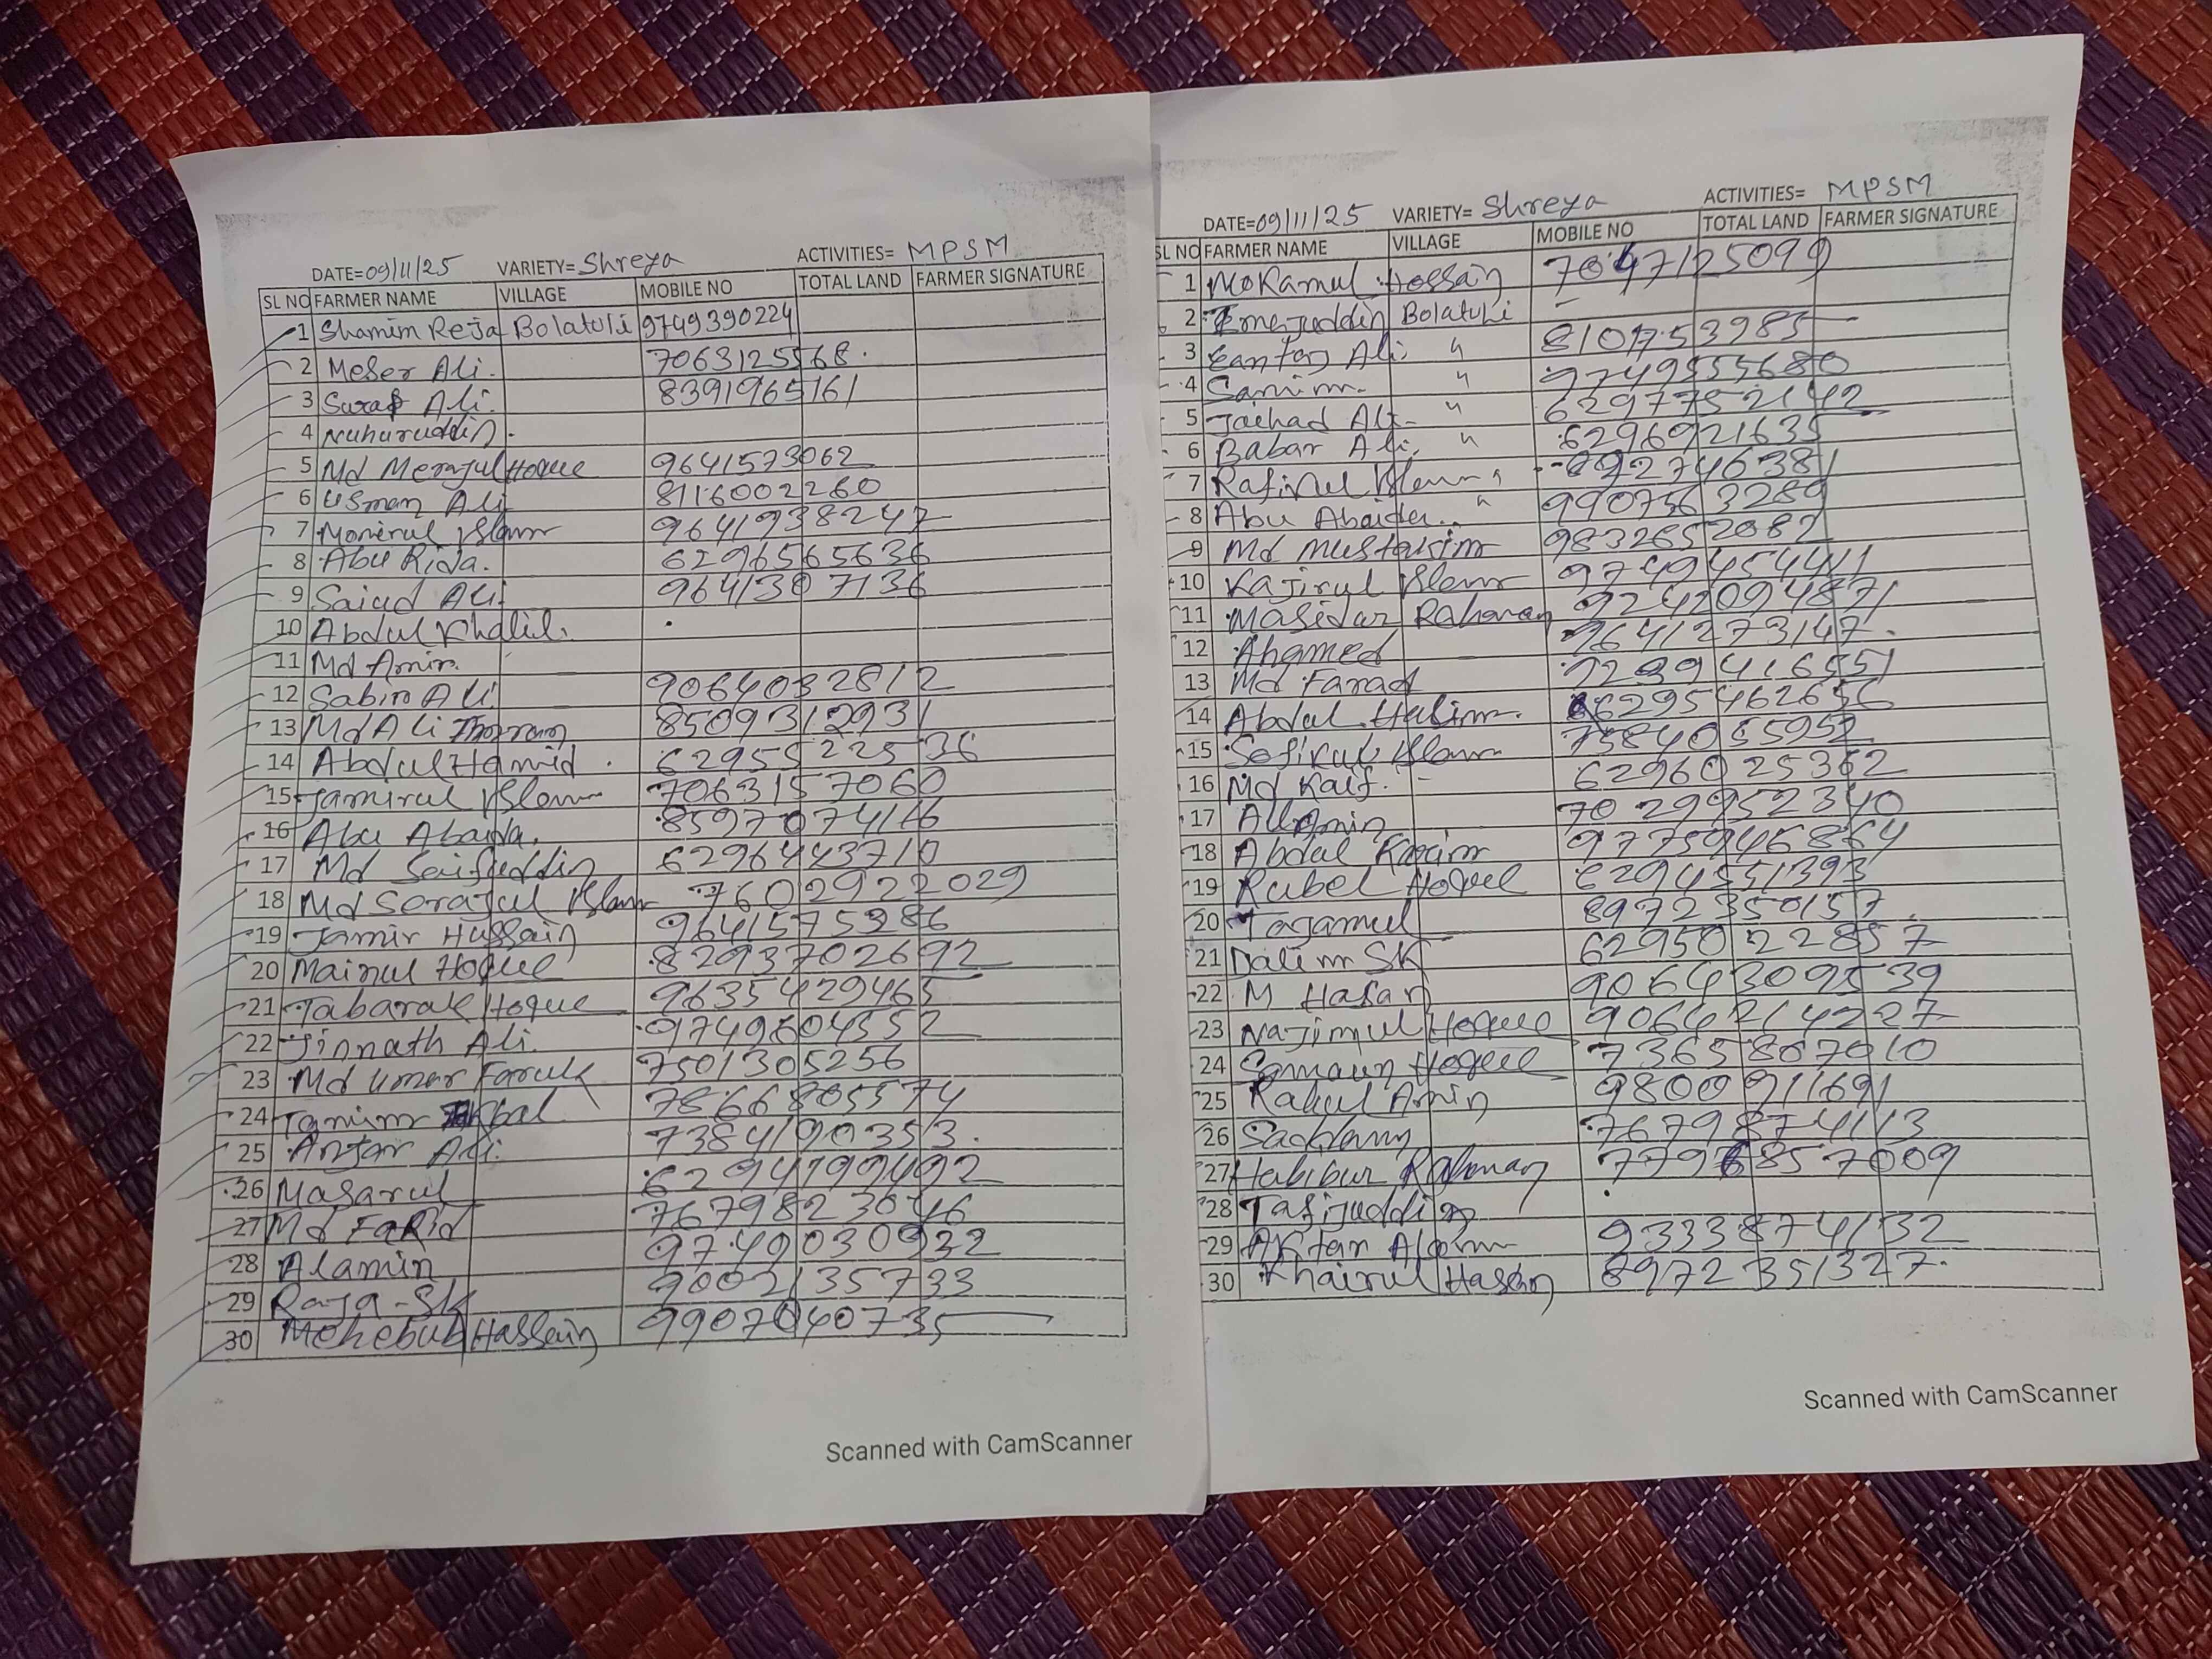 DATE=09/11/25 VARIETY=Shreya ACTIVITIES= MPSM
SL NO FARMER NAME VILLAGE MOBILE NO TOTAL LAND FARMER SIGNATURE
1 Shamim Reja Bolatuli 9749390224
2 Meser Ali. 7063125568.
3 Ali. 8391965161
4 Nuhuruddin.
5 Md Merajul Hoque 9641573062
6 Usman Ali 8116002260
7 Monirul Islam 9641938247
8 Abu Rida. 6296565636
9 Saiud Ali 9641307136
10 Abdul Khalil.
11 Md Amin.
12 Sabir Ali 9064032812
13 Md Ali 8509312931
14 Abdul Hamid. 6295522536
15 Jamirul Islam 7063157060
16 Abu 8597074116
17 Md Saifuddin 6296443710
18 Md Serajul Islam 7602922029
19 Jamir Hussain 9641575286
20 Mainul Hoque 82937702692
21 Tabarak Hoque 9635429465
22 Jinnath Ali. 9749604552
23 Md Umar Faruk 7501305256
24 Tamim 7866805574
25 Anjar Ali. 7384190353.
26 Masarul 6294799492
27 Md Farid 7679823046
28 Alamin 9749030932
29 Raja-SK 9002135733
30 Mehebub Hassain 9907040735
Scanned with CamScanner
DATE=09/11/25 VARIETY= Shreya ACTIVITIES= MPSM
SL NO FARMER NAME VILLAGE MOBILE NO TOTAL LAND FARMER SIGNATURE
1 Mokamul Hossain 7047125099
2 Emejuddin Bolatuli -
3 Ali. " 8101753985
4 Samim. " 9749555680
5 Ali- " 6297752142
6 Babar Ali. " 6296921635
7 Rafikul Islam " 892746381
8 Abu Abaida.. " 9907563289
9 Md Mustakim 9832652082
10 Kajirul Islam 9749454411
11 Masidur Rahaman 9242094871
12 Ahamed 9641273147.
13 Md Farad
14 Abdul Halim. 6295462656
15 Sofikul Islam 7584055952
16 Md Kaif. - 6296025362
17 Allamin 7029952340
18 Abdul Karim 9775946864
19 Rubel Hoque 6294551393
20 Tajamul 8972350157.
21 Dalim SK 6295022857
22 M Hasan 9064309539
23 Najimul Hoque 9064214227
24 Hoque 7365867010
25 Rahul Amin 9800911691
26 Saddam 7679874113
27 Habibur Rahman 7796857009
28 Tafijuddin
29 Aktar Alam 9333874132
30 Khairul Hasan 8972351327.
Scanned with CamScanner